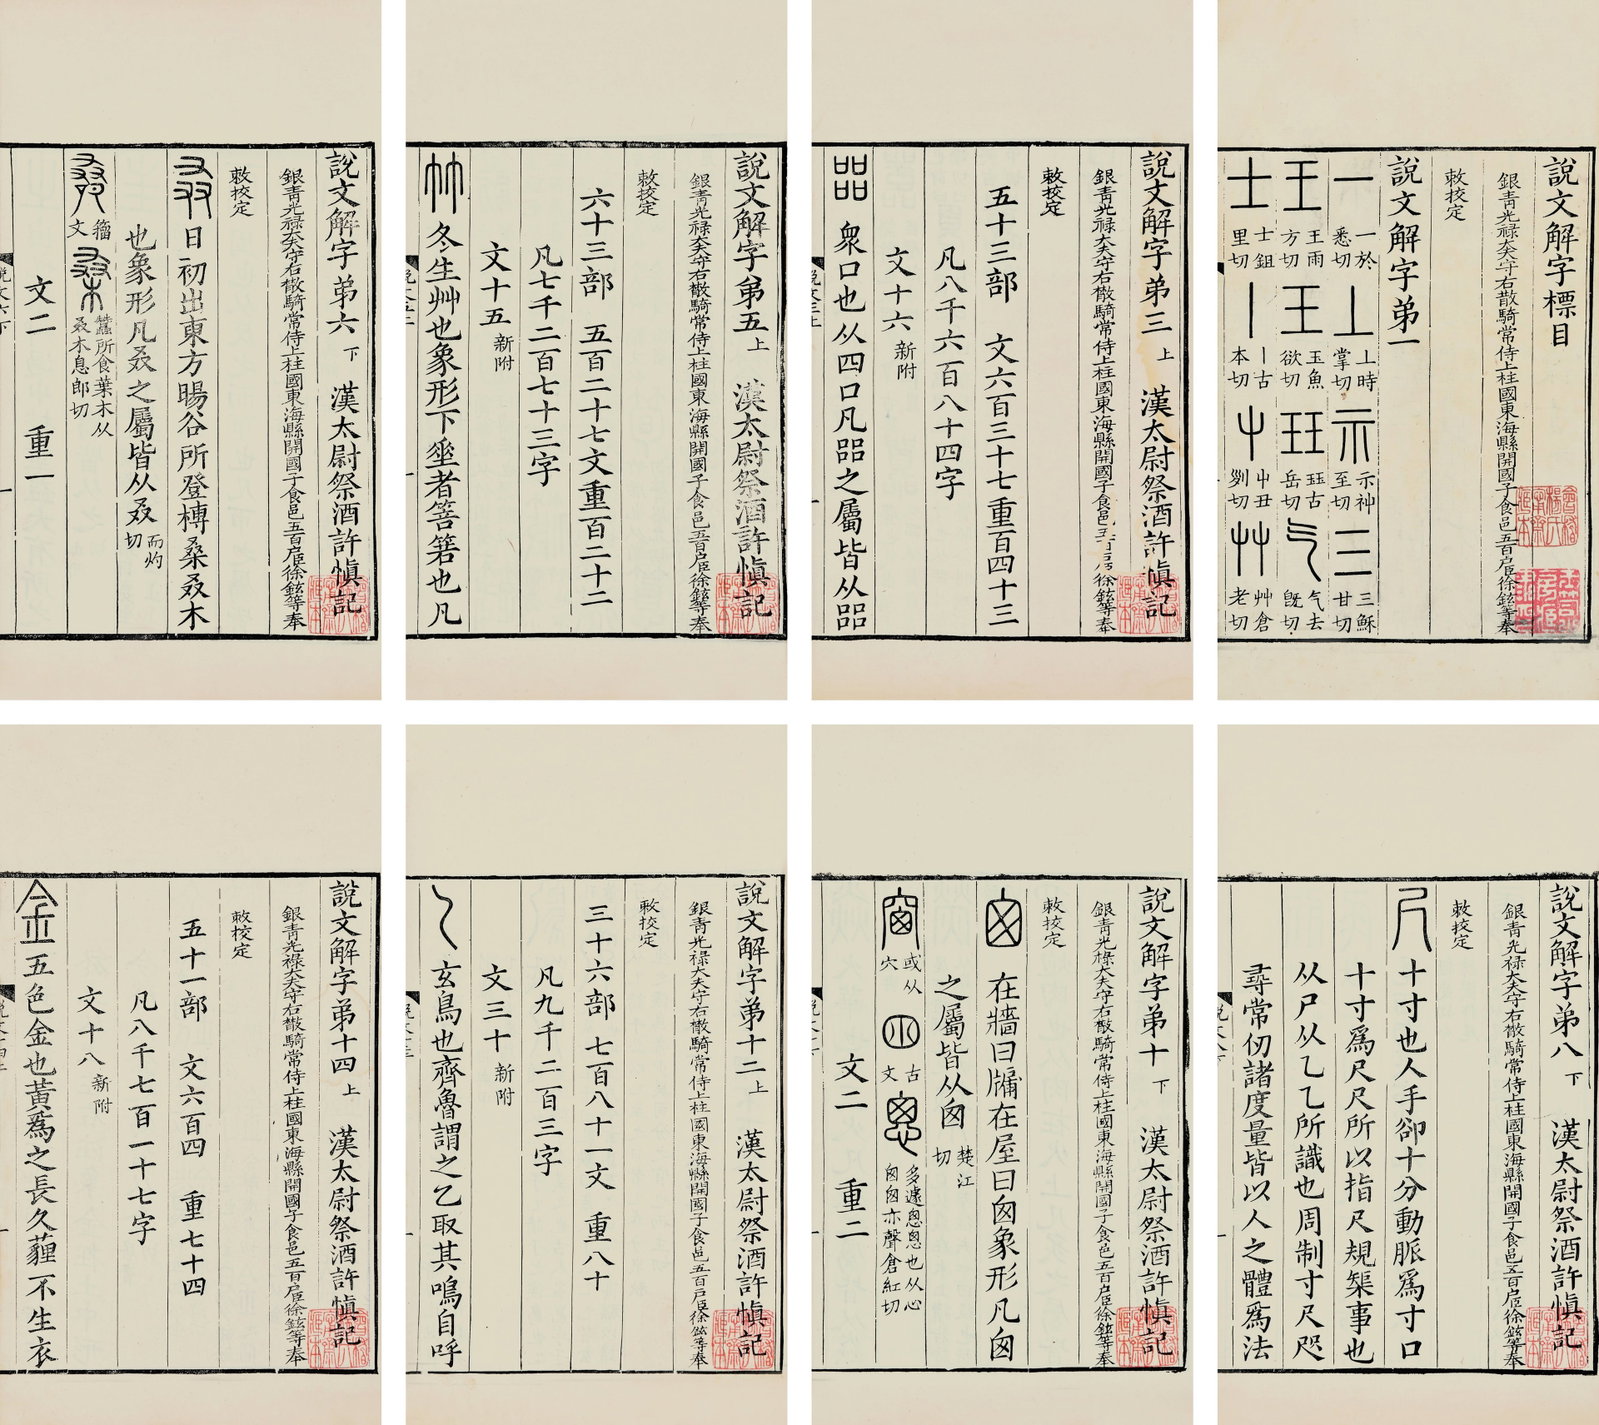 說文解字標目
銀青光祿大夫守右散騎常侍上柱國東海縣開國子食邑五百戶臣徐鉉等奉
敕校定
說文解字弟一
一 一於悉切 丄 丄時掌切 示 示神至切 三 三穌甘切
王 王雨方切 王 玉魚欲切 玨 玨古岳切 气 气去既切
士 士鉏里切 丨 丨古本切 屮 屮丑列切 艸 艸倉老切
說文解字弟三 上 漢太尉祭酒許慎記
銀青光祿大夫守右散騎常侍上柱國東海縣開國子食邑五百戶臣徐鉉等奉
敕校定
五十三部 文六百三十七重百四十三
凡八千六百八十四字
文十六 新附
㗊 眾口也从四口凡㗊之屬皆从㗊
說文解字弟五 上 漢太尉祭酒許慎記
銀青光祿大夫守右散騎常侍上柱國東海縣開國子食邑五百戶臣徐鉉等奉
敕校定
六十三部 五百二十七文重百二十二
凡七千二百七十三字
文十五 新附
竹 冬生艸也象形下垂者箁箬也凡
說文解字弟六 下 漢太尉祭酒許慎記
銀青光祿大夫守右散騎常侍上柱國東海縣開國子食邑五百戶臣徐鉉等奉
敕校定
叒 日初出東方暘谷所登榑桑叒木
也象形凡叒之屬皆从叒 而灼切
籀文 桑 蠶所食葉木从叒木息郎切
文二 重一
說文六下
說文解字弟八 下 漢太尉祭酒許慎記
銀青光祿大夫守右散騎常侍上柱國東海縣開國子食邑五百戶臣徐鉉等奉
敕校定
尺 十寸也人手卻十分動脈爲寸口
十寸爲尺尺所以指尺規榘事也
从尸从乙乙所識也周制寸尺咫
尋常仞諸度量皆以人之體爲法
說文解字弟十 下 漢太尉祭酒許慎記
銀青光祿大夫守右散騎常侍上柱國東海縣開國子食邑五百戶臣徐鉉等奉
敕校定
囪 在牆曰牖在屋曰囪象形凡囪
之屬皆从囪 楚江切
窗 或从穴 古文 悤 多遽悤悤也从心囪囪亦聲倉紅切
文二 重二
說文解字弟十二 上 漢太尉祭酒許慎記
銀青光祿大夫守右散騎常侍上柱國東海縣開國子食邑五百戶臣徐鉉等奉
敕校定
三十六部 七百八十一文 重八十
凡九千二百三字
文三十 新附
乙 玄鳥也齊魯謂之乙取其鳴自呼
說文解字弟十四 上 漢太尉祭酒許慎記
銀青光祿大夫守右散騎常侍上柱國東海縣開國子食邑五百戶臣徐鉉等奉
敕校定
五十一部 文六百四 重七十四
凡八千七百一十七字
文十八 新附
金 五色金也黃爲之長久薶不生衣